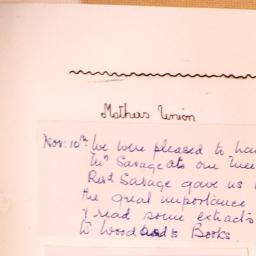 Mothers Union
Nov: 10th We were pleased to ha
Mrs Savage at our Mee
Revd Savage gave us
the great importance
& read some extracts
Dr Woodards Books.